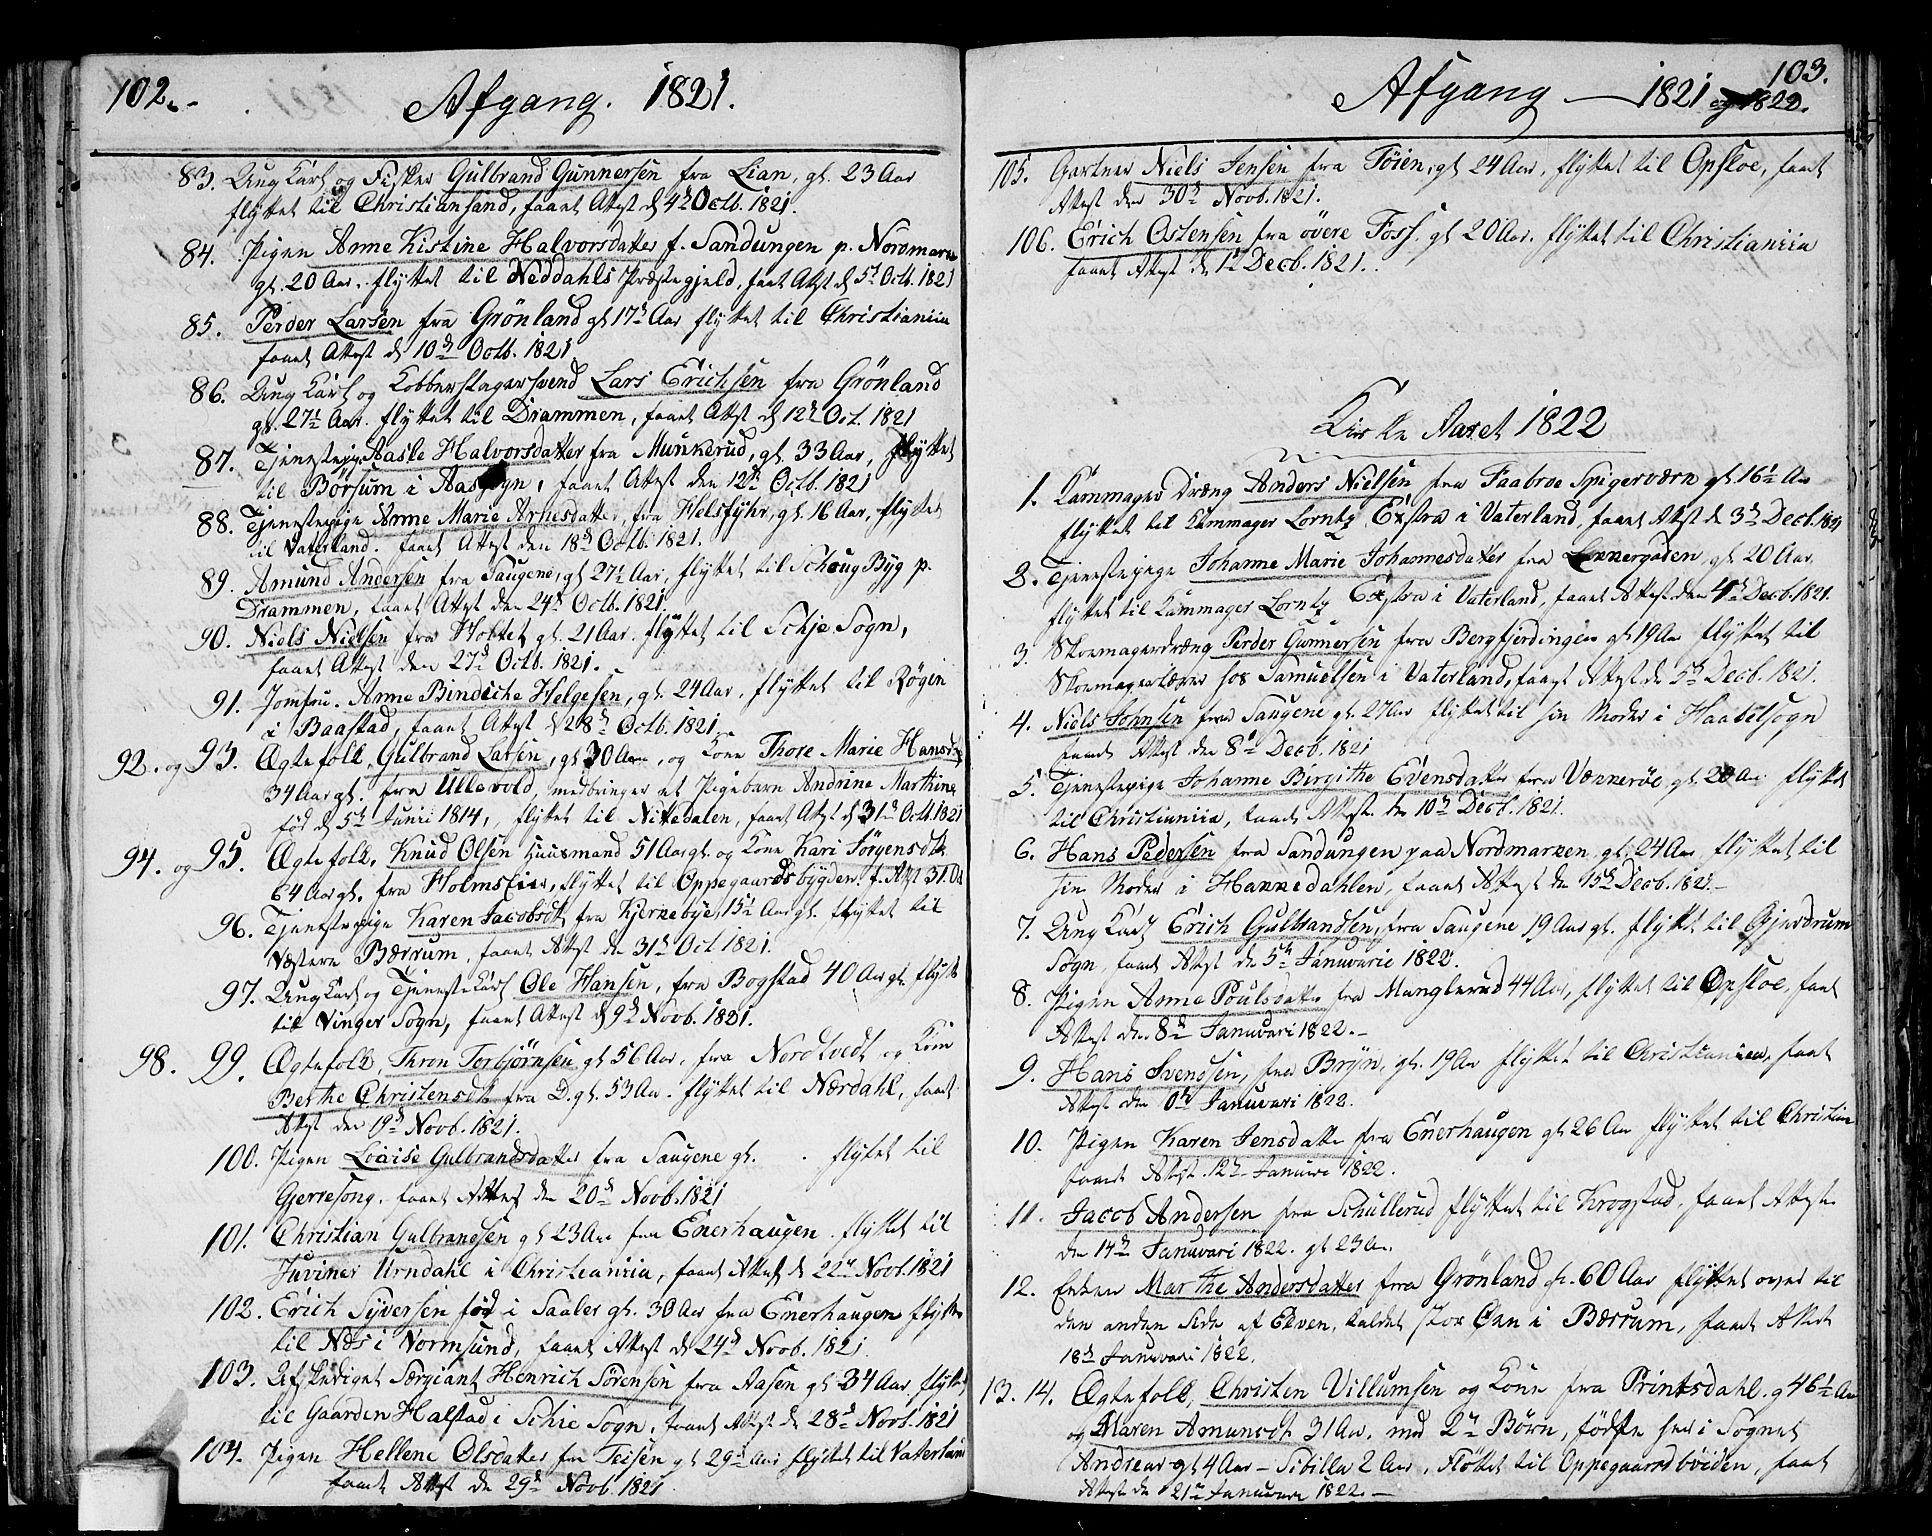 102.
Afgang. 1821.
83. Ung Karl og Fisker Gulbrand Gunnersen fra Lian, gl. 23 Aar
flyttet til Christiansand, faaet Attest d 4d Octb. 1821.
84. Pigen Anne Kistine Halvorsdatter f. Sandungen p. Nordmark
gl. 20 Aar. flyttet til Neddahls Præstegjeld, faaet Attst d 5t Octb. 1821
85. Perder Larsen fra Grönland gl 17d Aar flyttet til Christiania
faaet Attest d 10d Octb. 1821
86. Ung Karl og Kobberslagersvend Lars Erichsen fra Grönland
gl. 27½ Aar. flyttet til Drammen, faaet Attst d 12t Oct. 1821
87. Tjenestepige Aasle Halvorsdatter fra Munkerud, gl. 33 Aar, flyttet
til Börsum i Aas Sogn, faaet Attest den 12d Octb. 1821
88. Tjenestepige Anne Marie Arnesdatter, fra Helsfyhr, gl. 16 Aar, flyttet
til Vaterland. faaet Attest den 18d Octb. 1821.
89. Amund Andersen fra Saugene, gl 27½ Aar, flyttet til Schoug Byg p.
Drammen, faaet Attst den 24d Octb. 1821.
90. Niels Nielsen fra Holtet gl. 21 Aar. flyttet til Schje Sogn,
faaet Attest den 27d Octb. 1821.
91. Jomfru. Anne Bindiche Helgesen, gl. 24 Aar, flyttet til Røgin
i Baastad, faaet Attest d 28d Octb. 1821
92. og 93. Ægtefolk, Gulbrand Larsen, gl 30 Aar, og Kone Thore Marie Hansd
34 Aar gl. fra Ullevold, medbringer et Pigebarn Andrine Marthine
fød d 5t Junii 1814, flyttet til Nittedalen, faaet Attst d 31d Octb. 1821
94. og 95. Ægtefolk, Knud Olsen Huusmand 51 Aar gl. og Kone Kari Sörgensdt
64 Aar gl. fra Holmsliie, flyttet til Oppegaardsbygden. f. Attst 31 Oct
96. Tjenestepige Karen Jacobsdt fra Kjernebye, 15½ Aar gl. flyttet til
Væstern Bærrum, faaet Attest den 31d Oct 1821.
97. Ung Karl og Tjeneste Karl Ole Hansen, fra Bogstad 40 Aar gl. flytt
til Vinger Sogn, faaet Attest d 9d Novb. 1821.
98. 99. Ægtefolk, Thron Torbjörnsen gl 56 Aar, fra Nordtvedt og Kone
Berthe Christensdt fra D. gl. 53 Aar. flyttet til Nærdahl, faaet
Attst den 19d Novb. 1821.
100. Pigen Lovise Gulbrandsdatter fra Saugene gl. . flyttet til
Gjerresong, faaet Attest den 20d Novb. 1821
101. Christian Gulbrandsen gl 23 Aar fra Enerhaugen flyttet til
Juviner Urndahl i Christiania, faaet Attest d 22d Novb. 1821
102. Erich Syversen fød i Saaler gl. 30 Aar fra Enerhaugen flytte
til Næs i Vormsund, faaet Attest d 24d Novb. 1821.
103. Afskediget Særgiant Henrich Sörensen fra Aasen gl 34 Aar flyttet
til Gaarden Halstad i Schie Sogn, faaet Attest d 28d Novb. 1821
104. Pigen Hellene Olsdatter fra Teisen gl 29d Aar flyttet til Vaterland
faaet Attest den 29d Novb. 1821.
103.
Afgang — 1821 og 1822.
105. Gartner Niels Jensen fra Töien, gl 24 Aar, flyttet til Opsloe, faaet
Attest den 30d Novb. 1821.
106. Erich Ostensen fra övere Foss. gl 20 Aar. flyttet til Christiania
faaet Attest d 1t Decb. 1821.
Kirke Aaret 1822
1. Kammager Dræng Anders Nielsen fra Faabroe Spigerværn gl. 16½ Aar
flyttet til Kammager Lorntz Exstra i Vaterland, faaet Attest d 3d Decb. 1821
2. Tjenestepige Johanne Marie Johannesdatter fra Lonnergaden, gl 20 Aar,
flyttet til Kammager Lorntz Exstra i Vaterland, faaet Attest den 4d Decb. 1821.
3. Skoemagerdræng Perder Gunnersen fra Bergfjerdingen gl 19 Aar flyttet til
Skoemagerlærer hos Samuelsen i Vaterland, faaet Attest d 5d Decb. 1821.
4. Niels Johnsen fra Saugene gl. 27 Aar flyttet til sin Moder i Haabelsogn
faaet Attest den 8d Decb. 1821
5. Tjenestepige Johanne Birgithe Evensdatter fra Vækkeröe gl 20 Aar flyttet
til Christiania, faaet Attest den 10d Decb. 1821.
6. Hans Pedersen fra Sandungen paa Nordmarken gl: 24 Aar flyttet til
sin Moder i Hannedahlen, faaet Attest den 15d Decb. 1821.
7. Ung Karl Erich Gulbrandsen, fra Saugene 19 Aar gl. flyttet til Gjerdrum
Sogn, faaet Attest d 5d Januvarie 1822.
8. Pigen Anne Poulsdatter fra Manglerud 44 Aar, flyttet til Opsloe, faaet
Attest den 8d Januvari 1822.
9. Hans Svendsen, fra Bryn, gl. 19 Aar flyttet til Christiania, faaet
Attest den Januvari 1822.
10. Pigen Karen Jensdatter fra Enerhaugen gl 26 Aar flyttet til Christian
faaet Attest. 12d Januari 1822.
11. Jacob Andersen fra Schullerud flyttet til Krogstad, faaet Attest
den 14d Januvari 1822. gl 23 Aar.
12. Enken Marthe Andersdatter fra Grönland gl. 60 Aar flyttet over til
den anden Side af Elven, kaldet stor Oen i Bærrum, faaet Attest
18d Januvari 1822.
13. 14. Ægtefolk, Christen Villumsen og Kone fra Printsdahl. g 46½ Aar
og Maren Amunsdt 31 Aar, med 2d Börn, födte her i Sognet
Andreas gl 4 Aar – Sibilla 2 Aar, Flöttet til Oppegaardsböiden, faaet
Attest den 21d Januvari 1822.